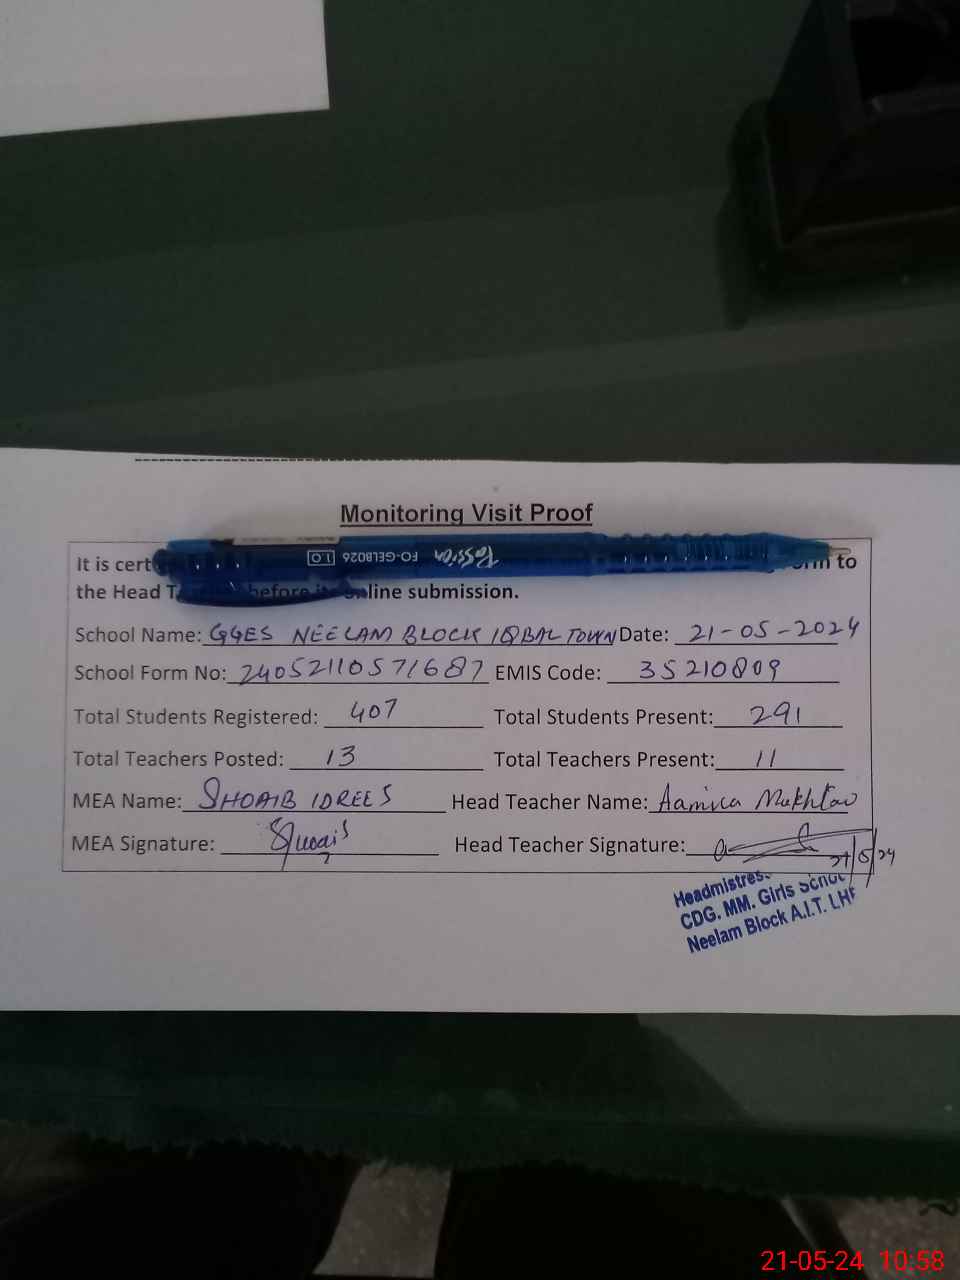 Monitoring Visit Proof
It is cert to
the Head before its online submission.
School Name: GGES NEELAM BLOCK IQBAL TOWN Date: 21-05-2024
School Form No: 24052110571687 EMIS Code: 35210809
Total Students Registered: 407 Total Students Present: 291
Total Teachers Posted: 13 Total Teachers Present: 11
MEA Name: SHOAIB IDREES Head Teacher Name: Aamna Mukhtar
MEA Signature: Shoaib Head Teacher Signature:
21/5/24
Headmistress
CDG. MM. Girls School
Neelam Block A.I.T. LHR
Passion FO-GELB026 1.0
21-05-24 10:58